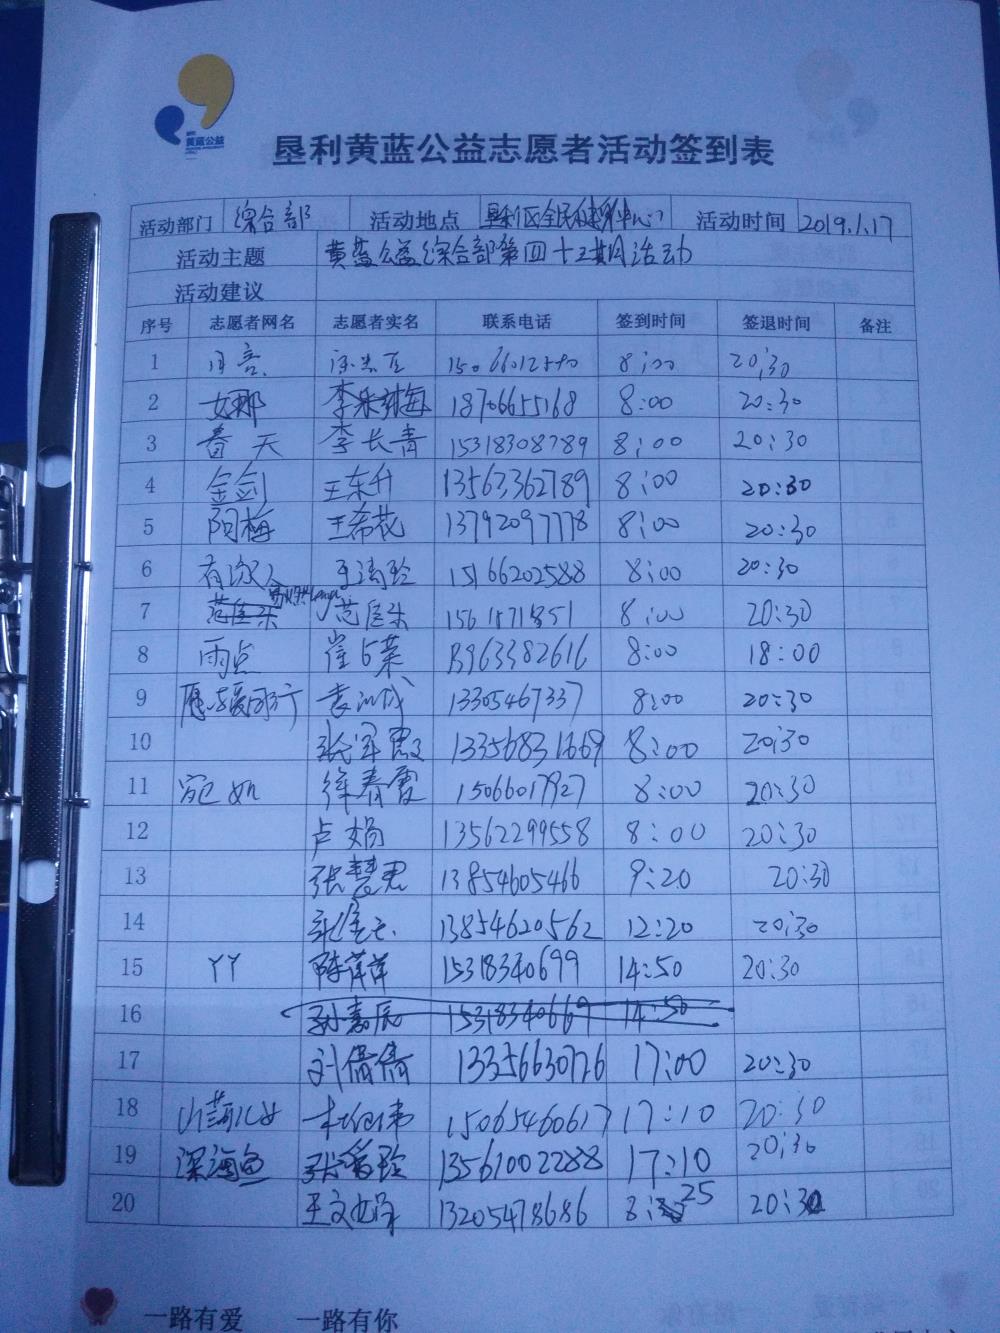 黄蓝公益
垦利黄蓝公益志愿者活动签到表
活动部门 综合部 活动地点 垦利区全民健身中心 活动时间 2019.1.17
活动主题 黄蓝公益综合部第四十五期活动
活动建议
序号 志愿者网名 志愿者实名 联系电话 签到时间 签退时间 备注
1 8:00 20:30
2 女那 李 梅 18706655168 8:00 20:30
3 春天 李长青 15318308789 8:00 20:30
4 金剑 王东升 13563362789 8:00 20:30
5 阿梅 王希花 13792097778 8:00 20:30
6 15166202588 8:00 20:30
7 范 范 1561571851 8:00 20:30
8 雨点 崔 菜 13963382616 8:00 18:00
9 袁 成 13305467337 8:00 20:30
10 张军 13356831669 8:00 20:30
11 宛如 徐春霞 15066017927 8:00 20:30
12 卢娟 13562299558 8:00 20:30
13 张慧君 13854605466 9:20 20:30
14 13854620562 12:20 20:30
15 YY 陈萍萍 15318340699 14:50 20:30
16 孙嘉辰 15318340669 14:50
17 刘倩倩 13356630726 17:00 20:30
18 15065460617 17:10 20:30
19 深海鱼 张 玲 13561002288 17:10 20:30
20 王文 13205478686 8:25 20:30
一路有爱 一路有你